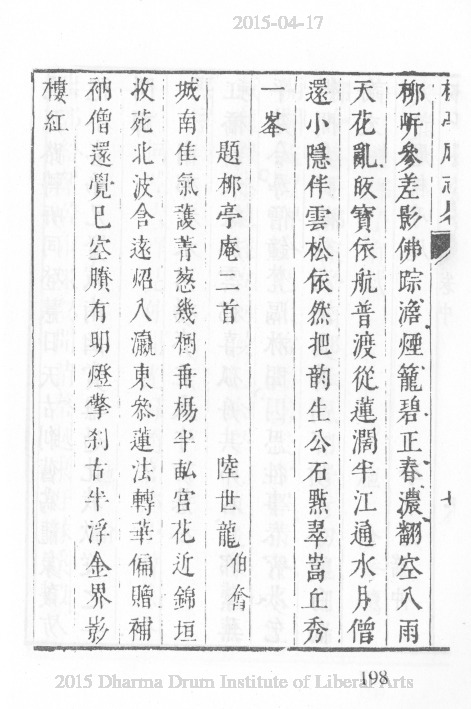 2015-04-17
柳昕參差影佛踪澹煙籠碧正春濃翻空入雨
天花亂皈寶依航普渡從蓮濶半江通水月僧
還小隱伴雲松依然把韵生公石㸃翠嵩丘秀
一峯
題柳亭庵二首 陸世龍伯喬
城南佳氣護菁葱幾樹垂楊半畝宮花近錦垣
妝苑北波含遠炤入瀛東叅蓮法轉華偏贈補
衲僧還覺已空賸有明燈擎刹古半浮金界影
樓紅
198
2015 Dharma Drum Institute of Liberal Arts